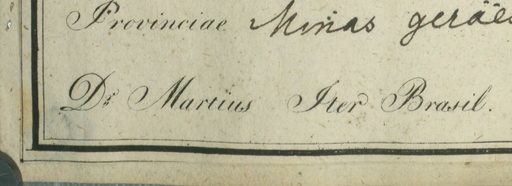 Provinciae Minas geraës
Dr. Martius Iter Brasil.